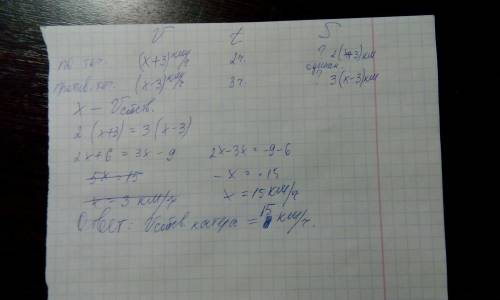 V t S
по теч. (x+3) км/ч 2ч. ? 2(x+3) км
против теч. (x-3) км/ч 3ч. ? 3(x-3) км
x - Vсобств.
2(x+3) = 3(x-3)
2x+6 = 3x-9 2x-3x = -9-6
5x = 15 -x = -15
x = 3 км/ч x = 15 км/ч
Ответ: Vсобств катера = 15 км/ч.